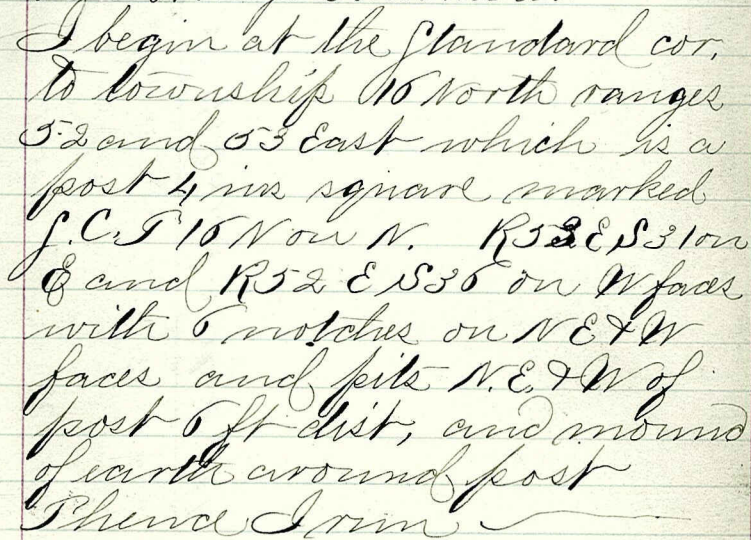 I begin at the Standard cor.
to township 16 North ranges
52 and 53 East which is a
post 4 ins square marked
S.C.T 16 N on N. R53E S31 on
E and R52 E S36 on W faces
with 6 notches on N E & W
faces and pits N.E. & W of
post 6 ft dist, and mound
of earth around post
Thence I run